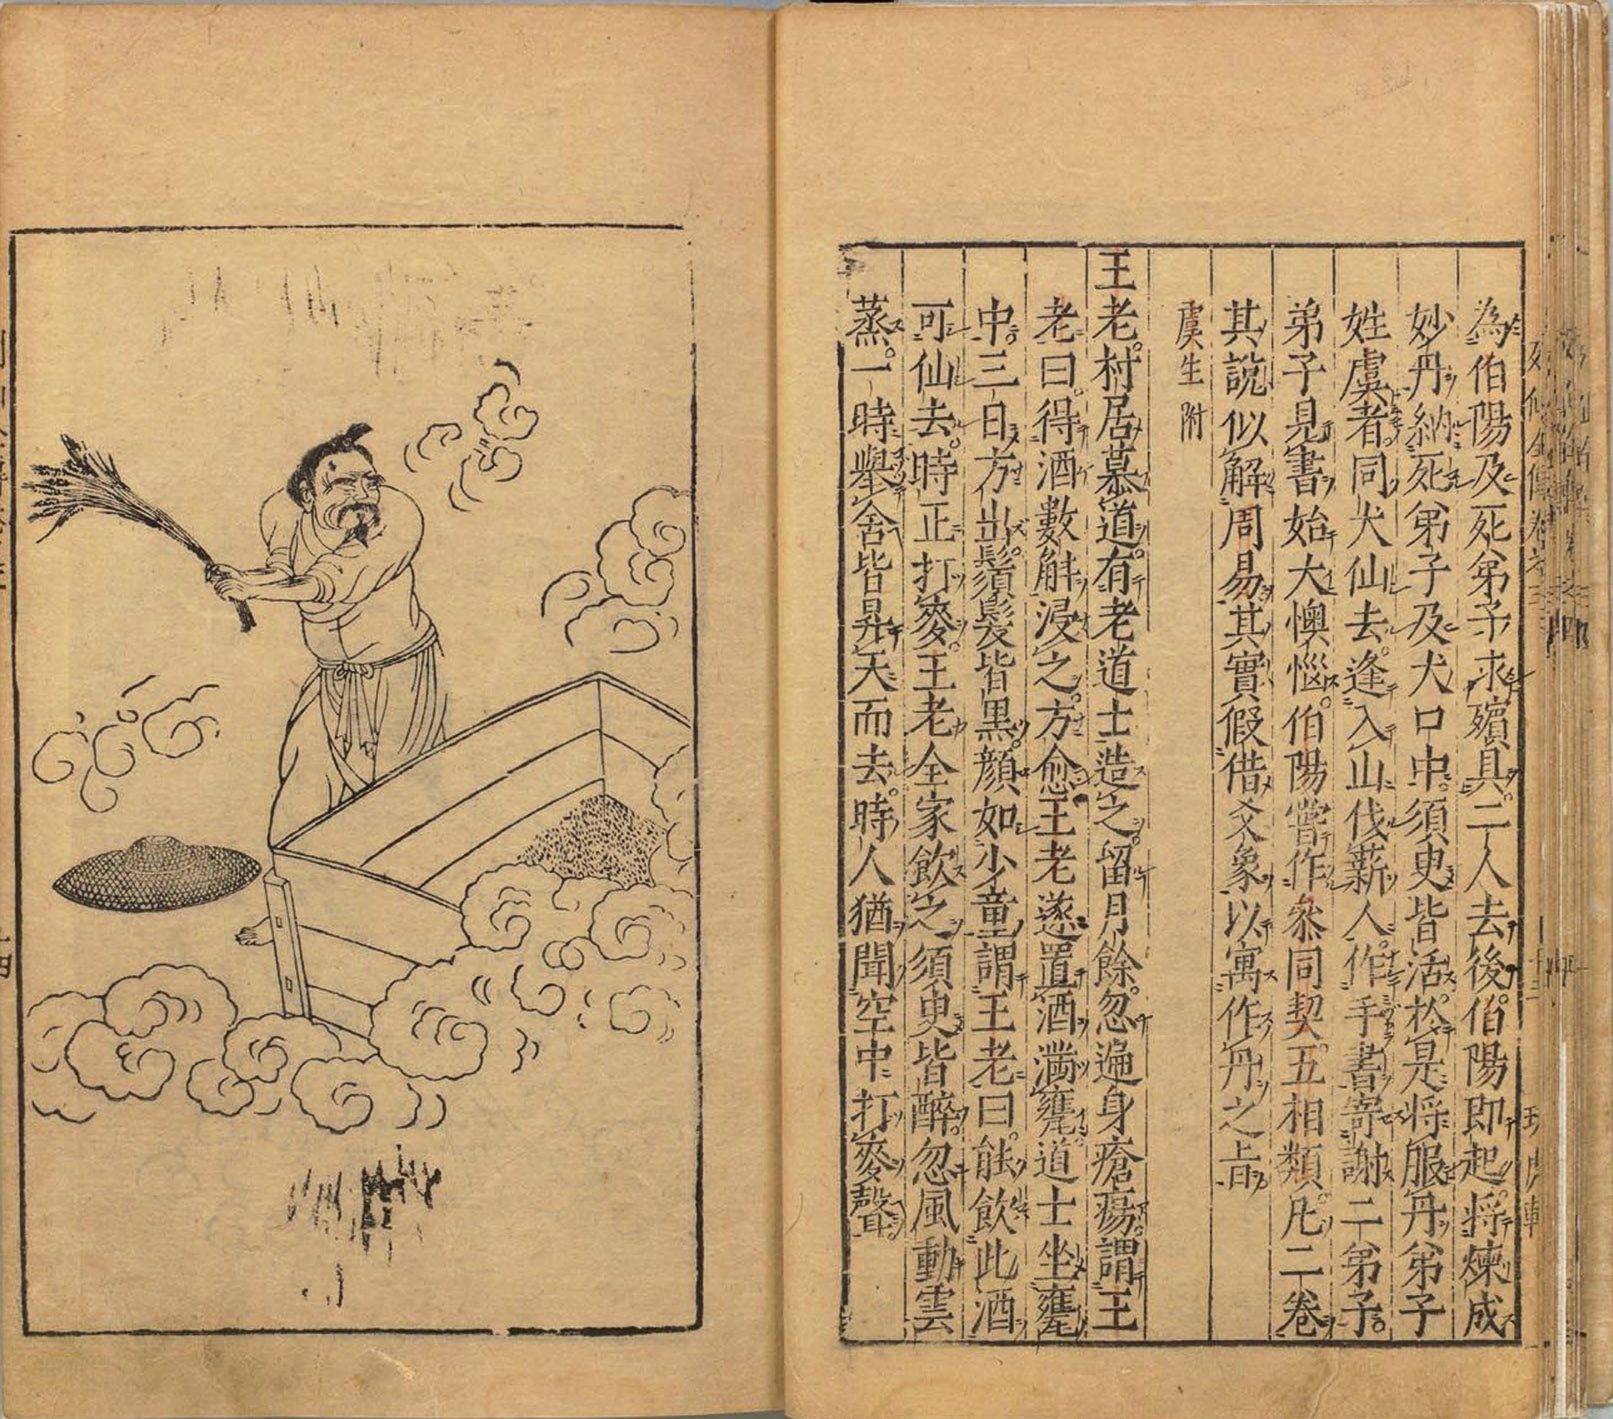 為伯陽及死弟子求殯具二人去後伯陽即起將煉成
妙丹納死弟子及犬口中須臾皆活於是將服丹弟子
姓虞者同犬仙去逢入山伐薪人作手書寄謝二弟子
弟子見書始大懊惱伯陽嘗作參同契五相類凡二卷
其說似解周易其實假借爻象以寓作丹之旨
虞生附
王老村居慕道有老道士造之留月餘忽遍身瘡瘍謂王
老曰得酒數斛浸之方愈王老遂置酒滿甕道士坐甕
中三日方出鬚髮皆黑顏如少童謂王老曰能飲此酒
可仙去時正打麥王老全家飲之須臾皆醉忽風動雲
蒸一時舉舍皆昇天而去時人猶聞空中打麥聲